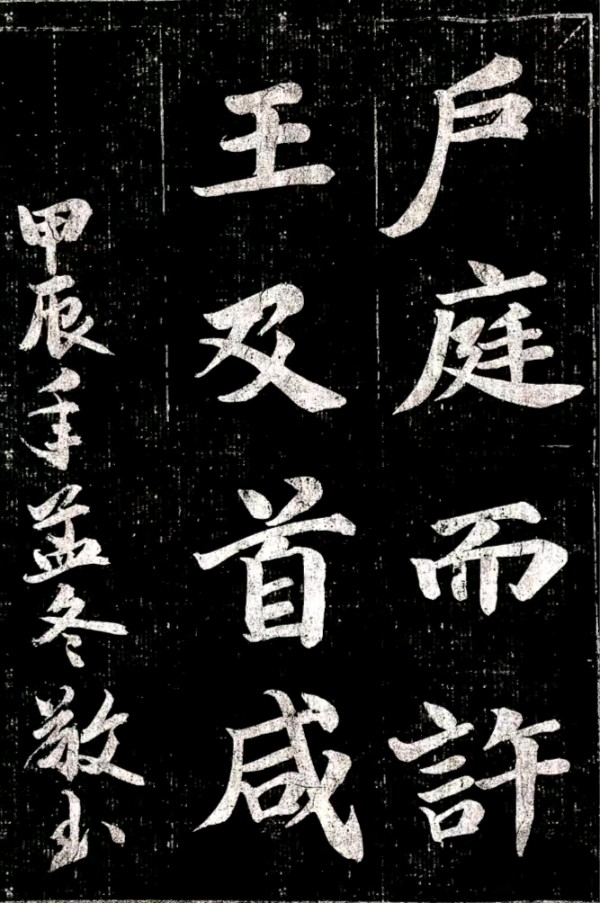 戶庭而許
王及首咸
甲辰年孟冬敬书